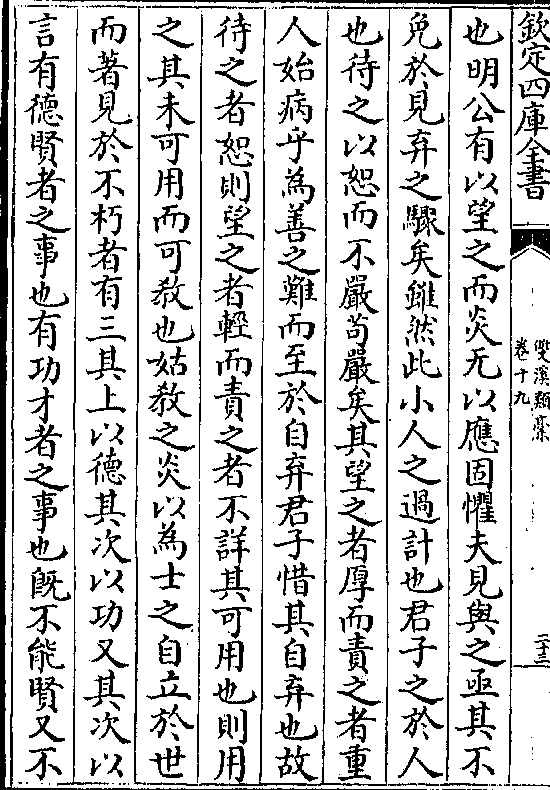 欽定四庫全書
雙溪類稾
卷十九
二十三
也明公有以望之而炎无以應固懼夫見與之亟其不
免於見弃之驟矣雖然此小人之過計也君子之於人
也待之以恕而不嚴苟嚴矣其望之者厚而責之者重
人始病乎為善之難而至於自弃君子惜其自弃也故
待之者恕則望之者輕而責之者不詳其可用也則用
之其未可用而可教也姑教之炎以為士之自立於世
而著見於不朽者有三其上以德其次以功又其次以
言有德賢者之事也有功才者之事也既不能賢又不